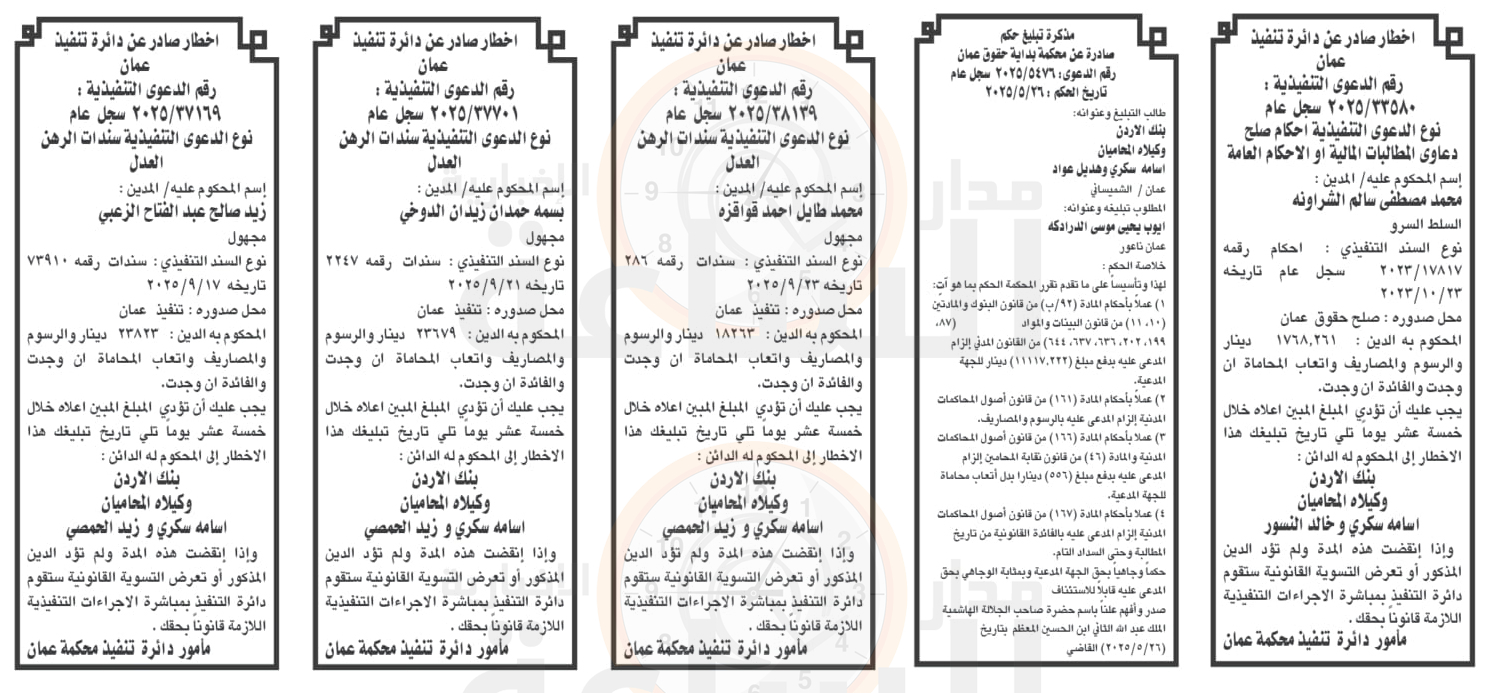 اخطار صادر عن دائرة تنفيذ
عمان
رقم الدعوى التنفيذية :
٢٠٢٥/٣٣٥٨٠ سجل عام
نوع الدعوى التنفيذية احكام صلح
دعاوى المطالبات المالية او الاحكام العامة
إسم المحكوم عليه/ المدين :
محمد مصطفى سالم الشراونه
السلط السرو
نوع السند التنفيذي : احكام رقمه
٢٠٢٣/١٧٨١٧ سجل عام تاريخه
٢٠٢٣/١٠/٢٣
محل صدوره : صلح حقوق عمان
المحكوم به الدين : ١٧٦٨,٢٦١ دينار
والرسوم والمصاريف واتعاب المحاماة ان
وجدت والفائدة ان وجدت.
يجب عليك أن تؤدي المبلغ المبين اعلاه خلال
خمسة عشر يوماً تلي تاريخ تبليغك هذا
الاخطار إلى المحكوم له الدائن :
بنك الاردن
وكيلاه المحاميان
اسامه سكري و خالد النسور
وإذا إنقضت هذه المدة ولم تؤد الدين
المذكور أو تعرض التسوية القانونية ستقوم
دائرة التنفيذ بمباشرة الاجراءات التنفيذية
اللازمة قانوناً بحقك .
مأمور دائرة تنفيذ محكمة عمان
مذكرة تبليغ حكم
صادرة عن محكمة بداية حقوق عمان
رقم الدعوى: ٢٠٢٥/٥٤٧٦ سجل عام
تاريخ الحكم : ٢٠٢٥/٥/٢٦
طالب التبليغ وعنوانه:
بنك الاردن
وكيلاه المحاميان
اسامه سكري وهديل عواد
عمان / الشميساني
المطلوب تبليغه وعنوانه:
ايوب يحيى موسى الدرادكه
عمان ناعور
خلاصة الحكم :
لهذا وتأسيساً على ما تقدم تقرر المحكمة الحكم بما هو آت:
١) عملاً بأحكام المادة (٩٢/ب) من قانون البنوك والمادتين
(١٠، ١١) من قانون البينات والمواد (٨٧،
١٩٩، ٢٠٢، ٦٣٦، ٦٣٧، ٦٤٤) من القانون المدني إلزام
المدعى عليه بدفع مبلغ (١١١١٧,٢٢٢) دينار للجهة
المدعية.
٢) عملاً بأحكام المادة (١٦١) من قانون أصول المحاكمات
المدنية إلزام المدعى عليه بالرسوم والمصاريف.
٣) عملاً بأحكام المادة (١٦٦) من قانون أصول المحاكمات
المدنية والمادة (٤٦) من قانون نقابة المحامين إلزام
المدعى عليه بدفع مبلغ (٥٥٦) دينارا بدل أتعاب محاماة
للجهة المدعية.
٤) عملا بأحكام المادة (١٦٧) من قانون أصول المحاكمات
المدنية إلزام المدعى عليه بالفائدة القانونية من تاريخ
المطالبة وحتى السداد التام.
حكماً وجاهياً بحق الجهة المدعية وبمثابة الوجاهي بحق
المدعى عليه قابلاً للاستئناف
صدر وأفهم علناً باسم حضرة صاحب الجلالة الهاشمية
الملك عبد الله الثاني ابن الحسين المعظم بتاريخ
(٢٠٢٥/٥/٢٦) القاضي
اخطار صادر عن دائرة تنفيذ
عمان
رقم الدعوى التنفيذية :
٢٠٢٥/٣٨١٣٩ سجل عام
نوع الدعوى التنفيذية سندات الرهن
العدل
إسم المحكوم عليه/ المدين :
محمد طايل احمد قواقزه
مجهول
نوع السند التنفيذي : سندات رقمه ٢٨٦
تاريخه ٢٠٢٥/٩/٢٣
محل صدوره : تنفيذ عمان
المحكوم به الدين : ١٨٢٦٣ دينار والرسوم
والمصاريف واتعاب المحاماة ان وجدت
والفائدة ان وجدت.
يجب عليك أن تؤدي المبلغ المبين اعلاه خلال
خمسة عشر يوماً تلي تاريخ تبليغك هذا
الاخطار إلى المحكوم له الدائن :
بنك الاردن
وكيلاه المحاميان
اسامه سكري و زيد الحمصي
وإذا إنقضت هذه المدة ولم تؤد الدين
المذكور أو تعرض التسوية القانونية ستقوم
دائرة التنفيذ بمباشرة الاجراءات التنفيذية
اللازمة قانوناً بحقك .
مأمور دائرة تنفيذ محكمة عمان
اخطار صادر عن دائرة تنفيذ
عمان
رقم الدعوى التنفيذية :
٢٠٢٥/٣٧٧٠١ سجل عام
نوع الدعوى التنفيذية سندات الرهن
العدل
إسم المحكوم عليه/ المدين :
بسمه حمدان زيدان الدوخي
مجهول
نوع السند التنفيذي : سندات رقمه ٢٢٤٧
تاريخه ٢٠٢٥/٩/٢١
محل صدوره : تنفيذ عمان
المحكوم به الدين : ٢٣٦٧٩ دينار والرسوم
والمصاريف واتعاب المحاماة ان وجدت
والفائدة ان وجدت.
يجب عليك أن تؤدي المبلغ المبين اعلاه خلال
خمسة عشر يوماً تلي تاريخ تبليغك هذا
الاخطار إلى المحكوم له الدائن :
بنك الاردن
وكيلاه المحاميان
اسامه سكري و زيد الحمصي
وإذا إنقضت هذه المدة ولم تؤد الدين
المذكور أو تعرض التسوية القانونية ستقوم
دائرة التنفيذ بمباشرة الاجراءات التنفيذية
اللازمة قانوناً بحقك .
مأمور دائرة تنفيذ محكمة عمان
اخطار صادر عن دائرة تنفيذ
عمان
رقم الدعوى التنفيذية :
٢٠٢٥/٣٧١٦٩ سجل عام
نوع الدعوى التنفيذية سندات الرهن
العدل
إسم المحكوم عليه/ المدين :
زيد صالح عبد الفتاح الزعبي
مجهول
نوع السند التنفيذي : سندات رقمه ٧٣٩١٠
تاريخه ٢٠٢٥/٩/١٧
محل صدوره : تنفيذ عمان
المحكوم به الدين : ٢٣٨٢٣ دينار والرسوم
والمصاريف واتعاب المحاماة ان وجدت
والفائدة ان وجدت.
يجب عليك أن تؤدي المبلغ المبين اعلاه خلال
خمسة عشر يوماً تلي تاريخ تبليغك هذا
الاخطار إلى المحكوم له الدائن :
بنك الاردن
وكيلاه المحاميان
اسامه سكري و زيد الحمصي
وإذا إنقضت هذه المدة ولم تؤد الدين
المذكور أو تعرض التسوية القانونية ستقوم
دائرة التنفيذ بمباشرة الاجراءات التنفيذية
اللازمة قانوناً بحقك .
مأمور دائرة تنفيذ محكمة عمان
مدار
الساعة
الإخبارية